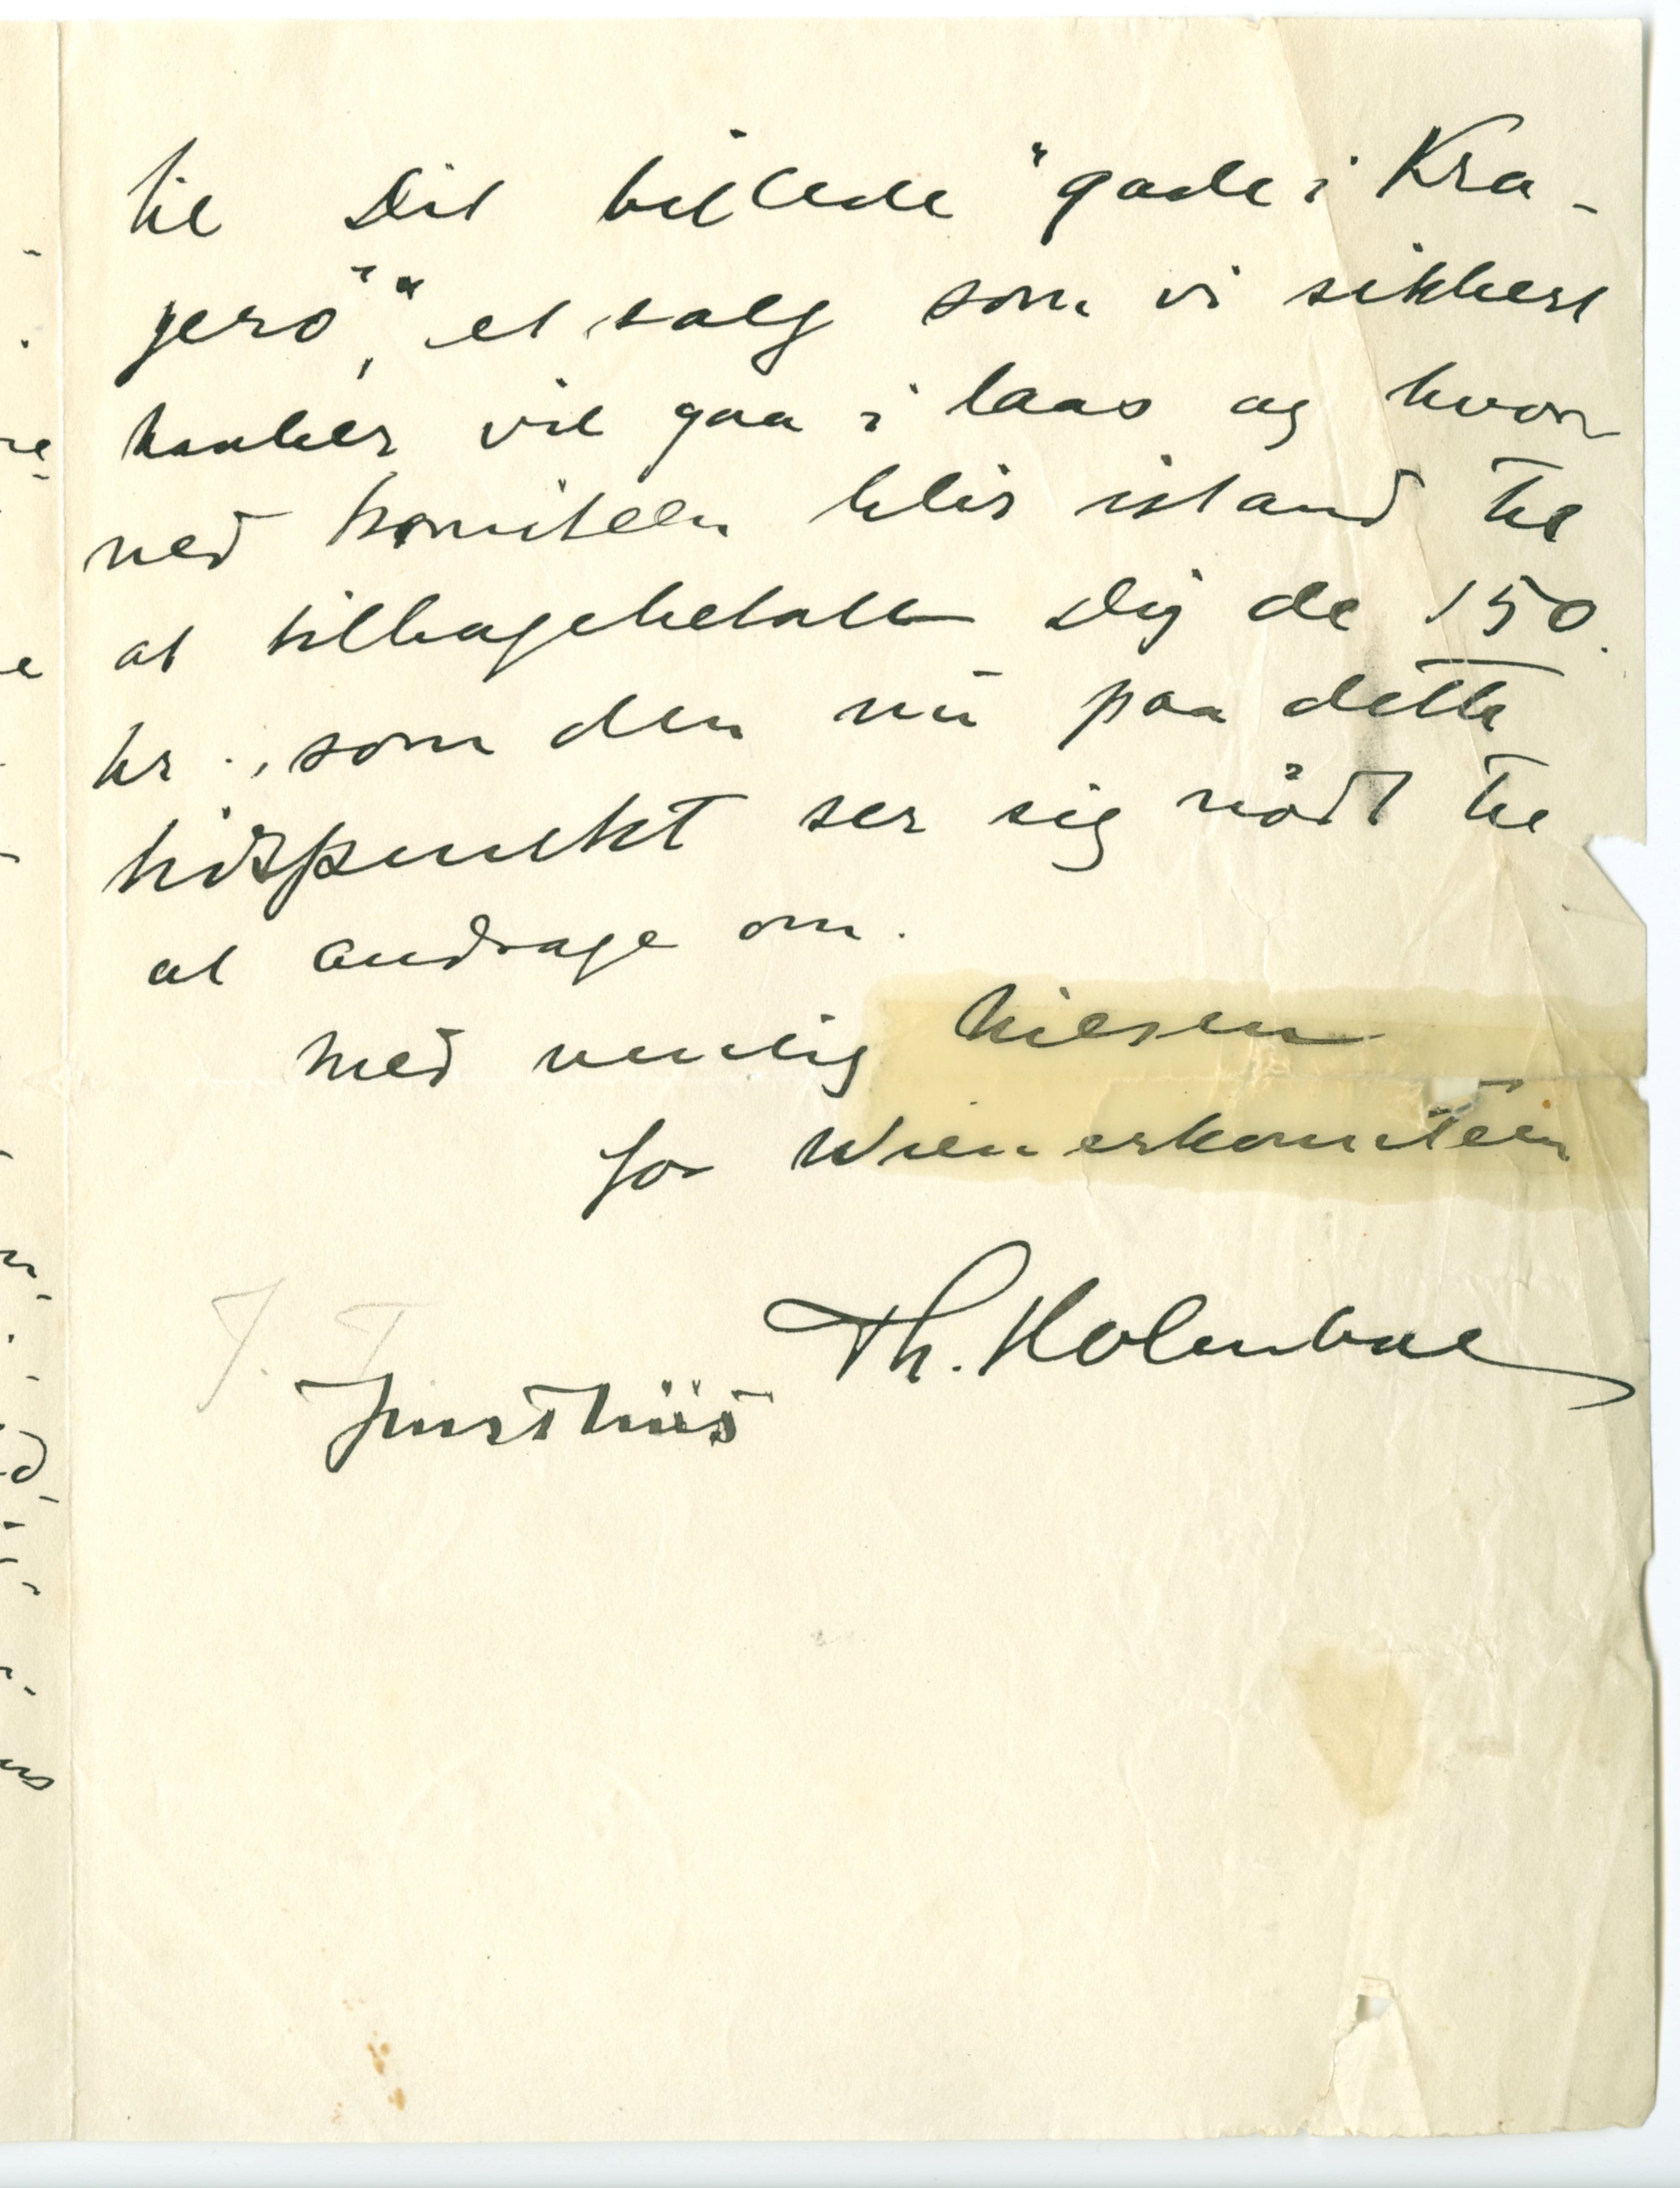 til Dit billede "gade i Kra-
gerö", et salg som vi sikkert
haaber vil gaa i laas og hvor
ved komiteen blir istand til
at tilbagebetale Dig de 150
kr., som den nu paa dette
tidspunkt ser sig nödt til
at andrage om.
Med venlig hilsen
for Wienerkomiteen
Th. Holmboe
J. T